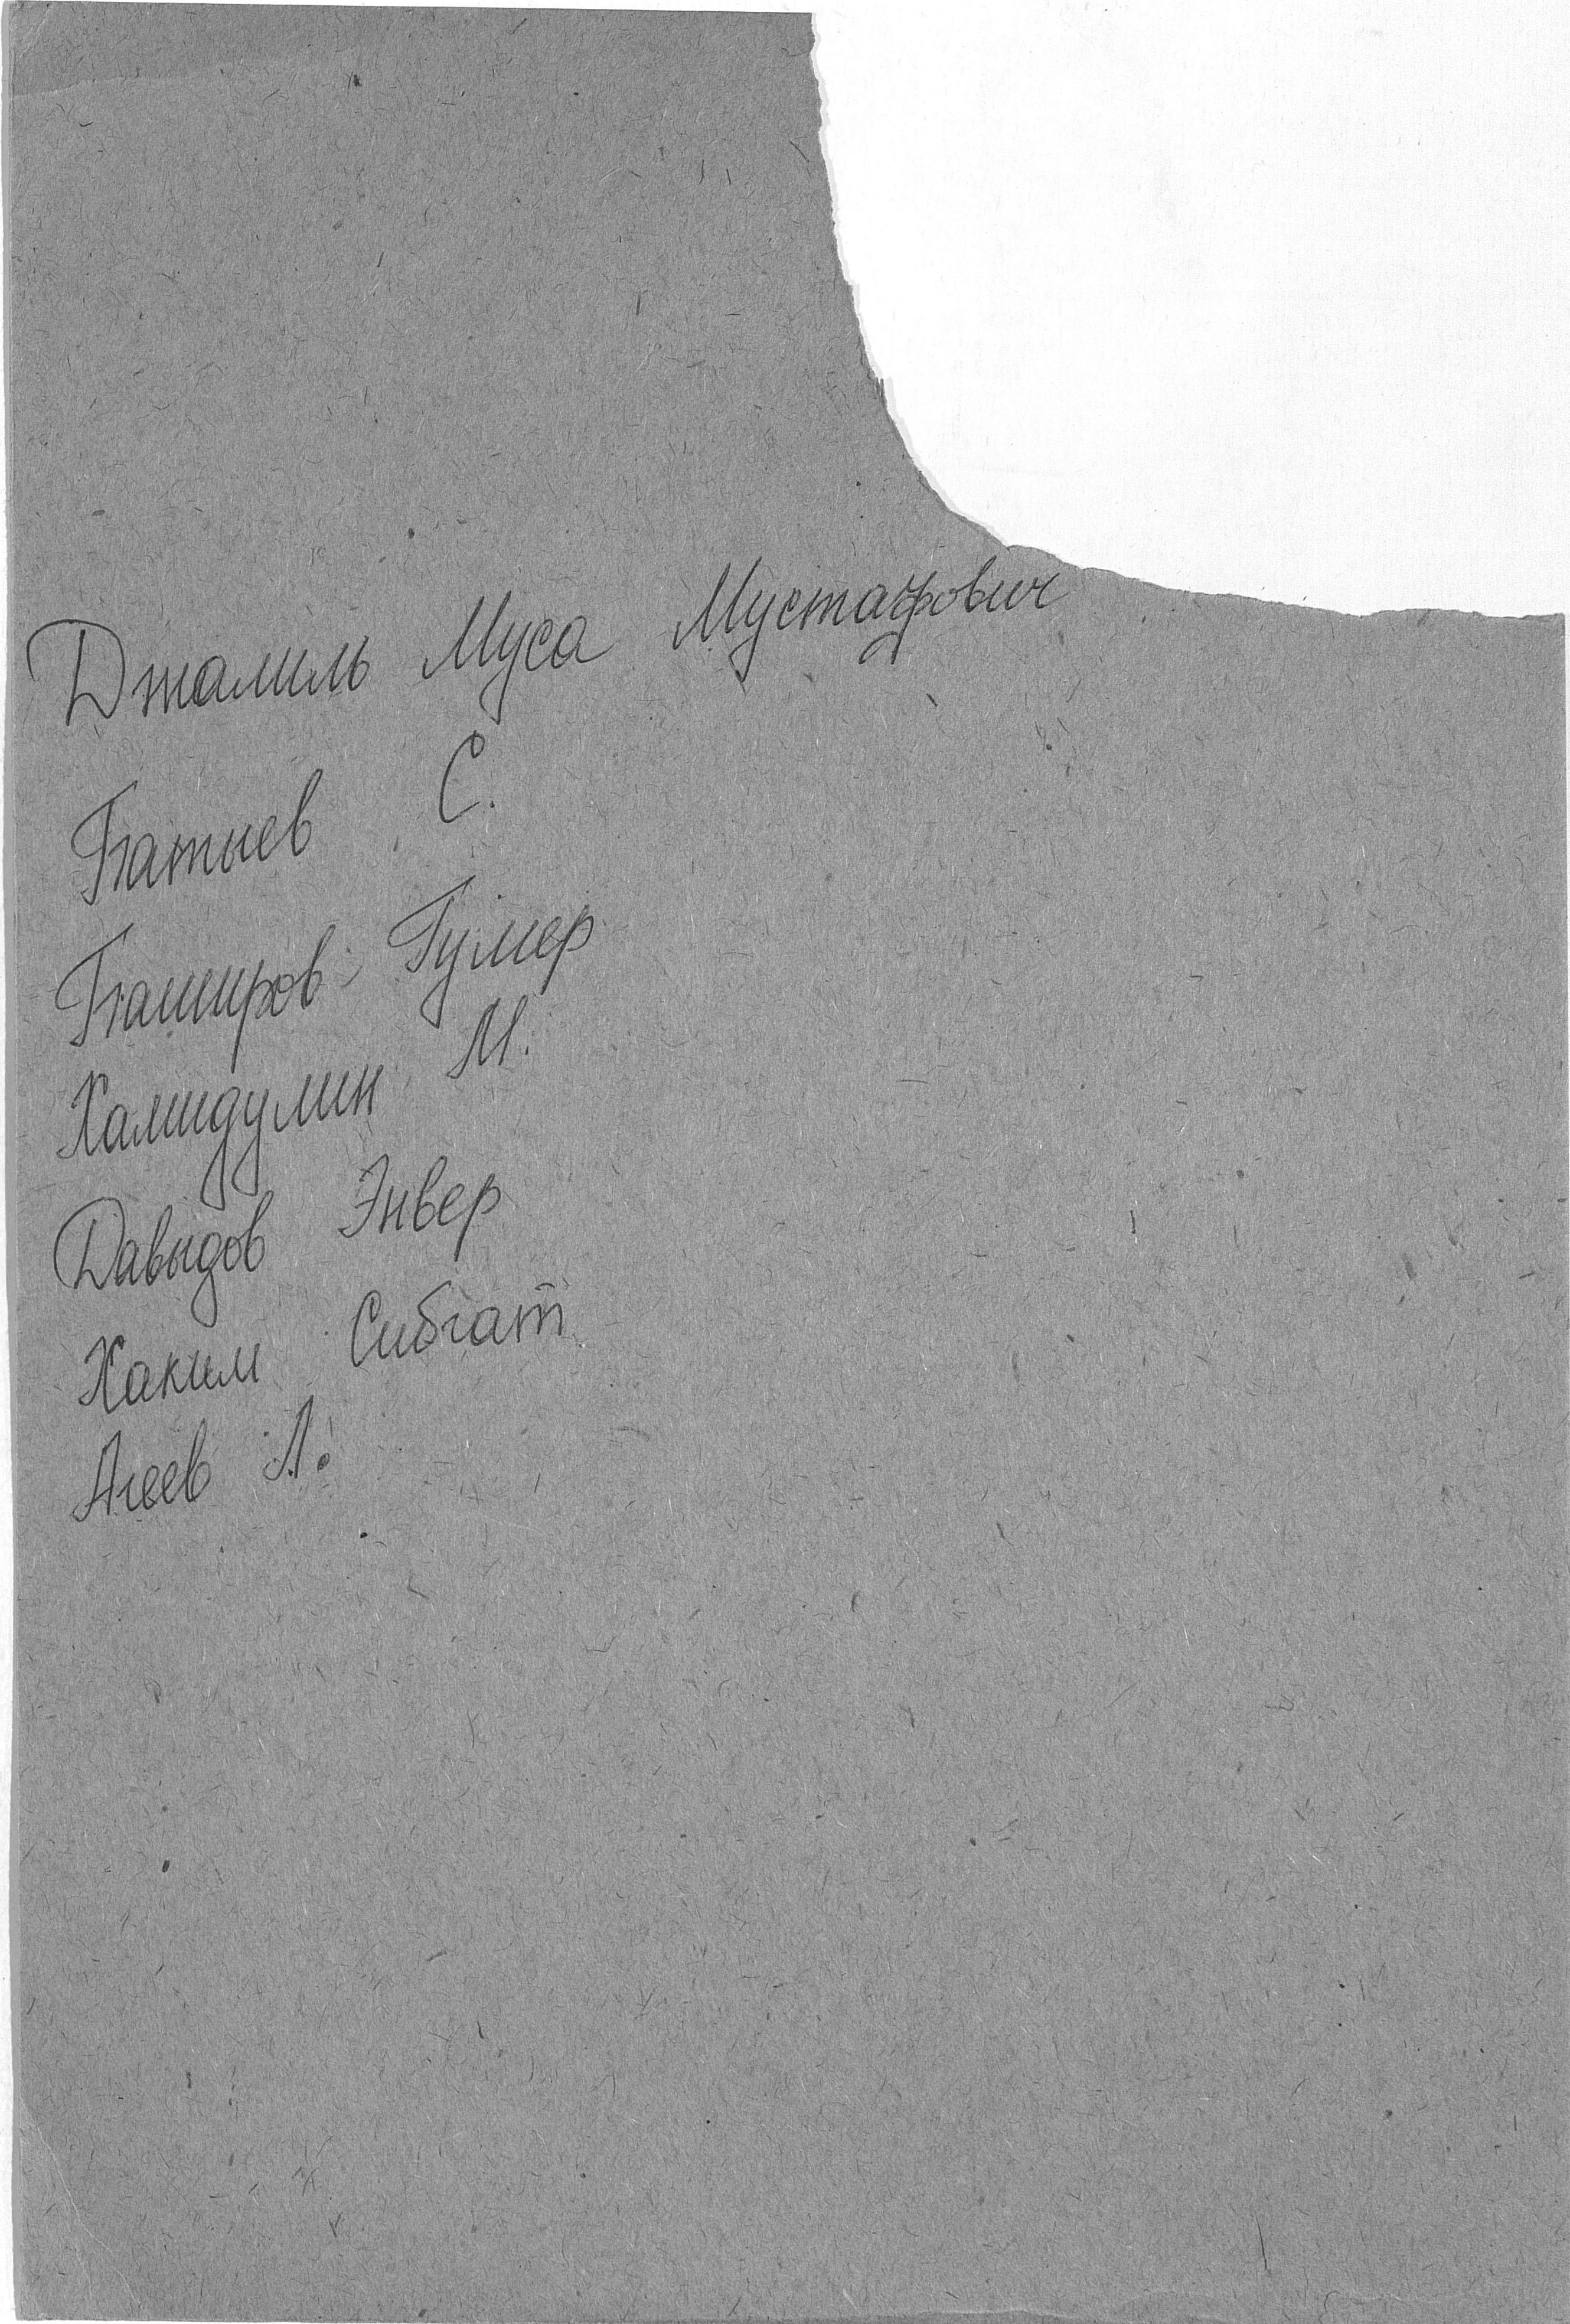 Джалиль Муса Мустафович
Батыев С.
Баширов Гумер
Хамидулин М.
Давыдов Энвер
Хаким Сибгат
Агеев А.